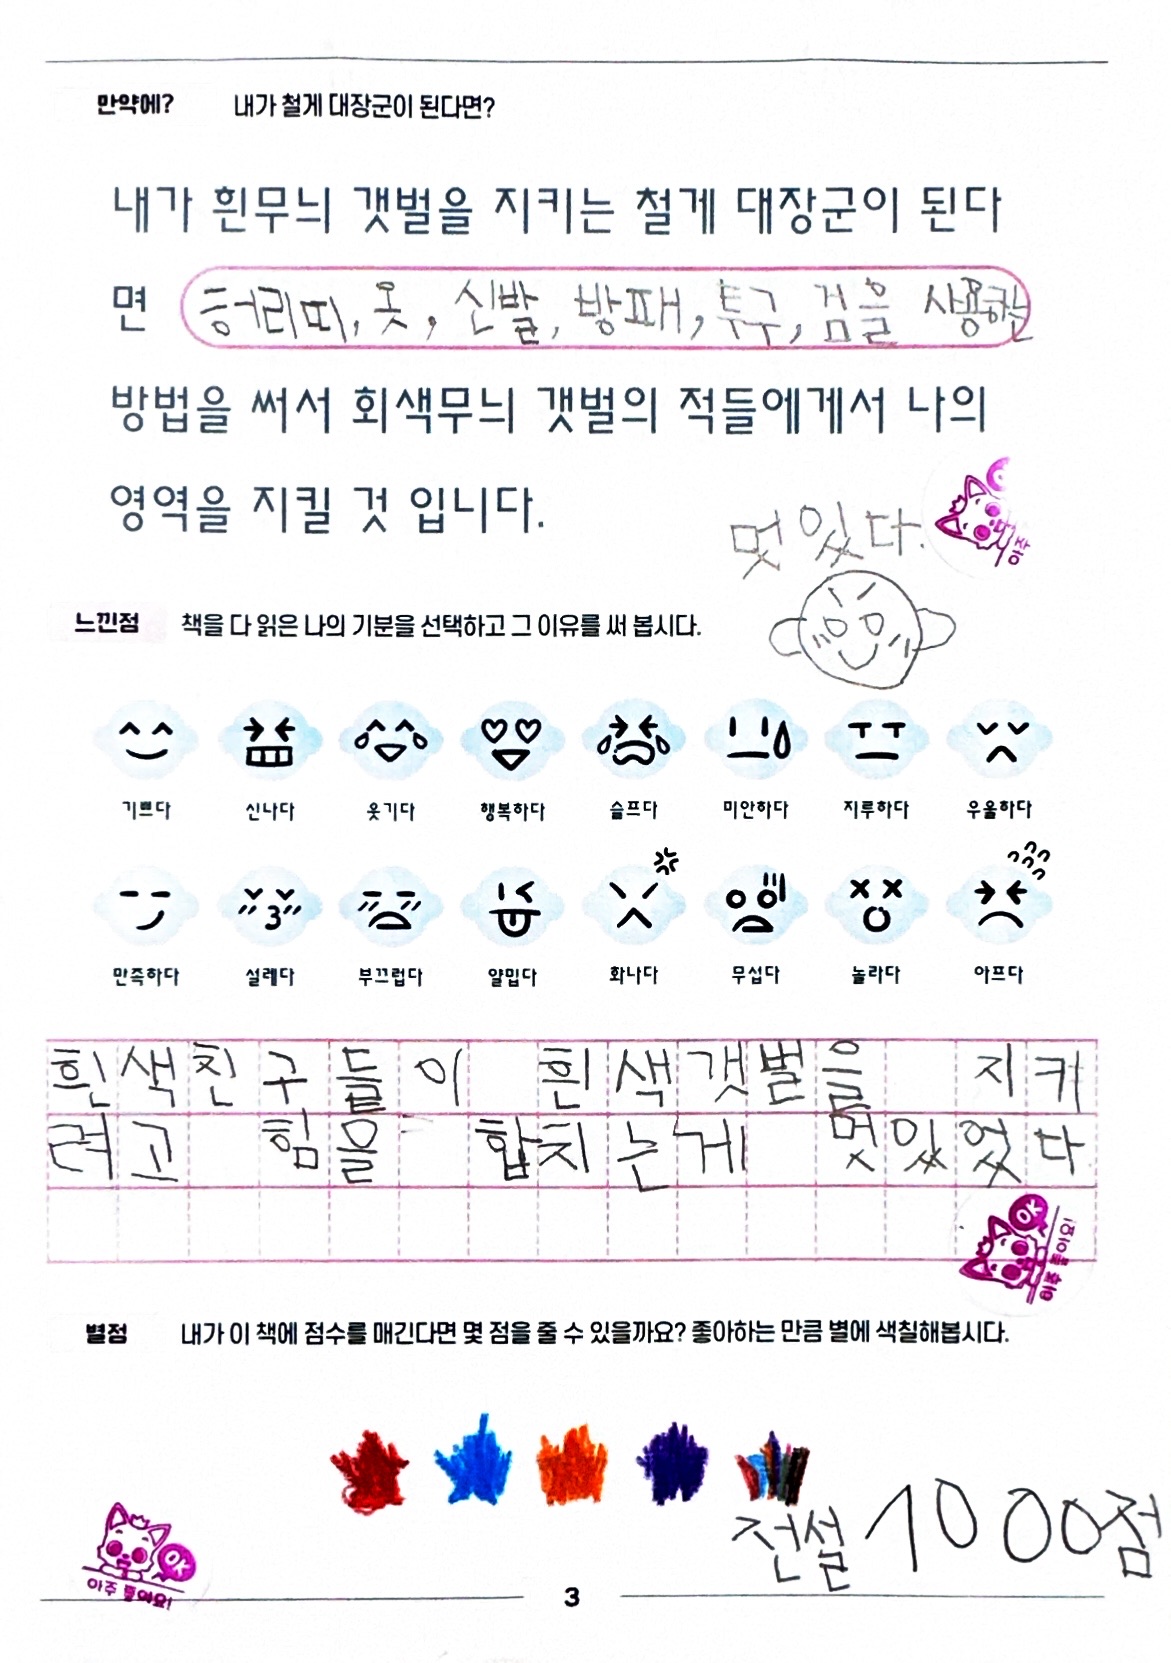 만약에? 내가 철게 대장군이 된다면?
내가 흰무늬 갯벌을 지키는 철게 대장군이 된다
면 허리띠, 옷, 신발, 방패, 투구, 검을 사용하는
방법을 써서 회색무늬 갯벌의 적들에게서 나의
영역을 지킬 것 입니다.
멋있다.
느낀점 책을 다 읽은 나의 기분을 선택하고 그 이유를 써 봅시다.
기쁘다 신나다 웃기다 행복하다 슬프다 미안하다 지루하다 우울하다
만족하다 설레다 부끄럽다 얄밉다 화나다 무섭다 놀라다 아프다
흰색친구들이 흰색갯벌을 지키
려고 힘을 합치는게 멋있었다
OK
별점 내가 이 책에 점수를 매긴다면 몇 점을 줄 수 있을까요? 좋아하는 만큼 별에 색칠해봅시다.
전설 1000점
OK
아주 좋아요!
3